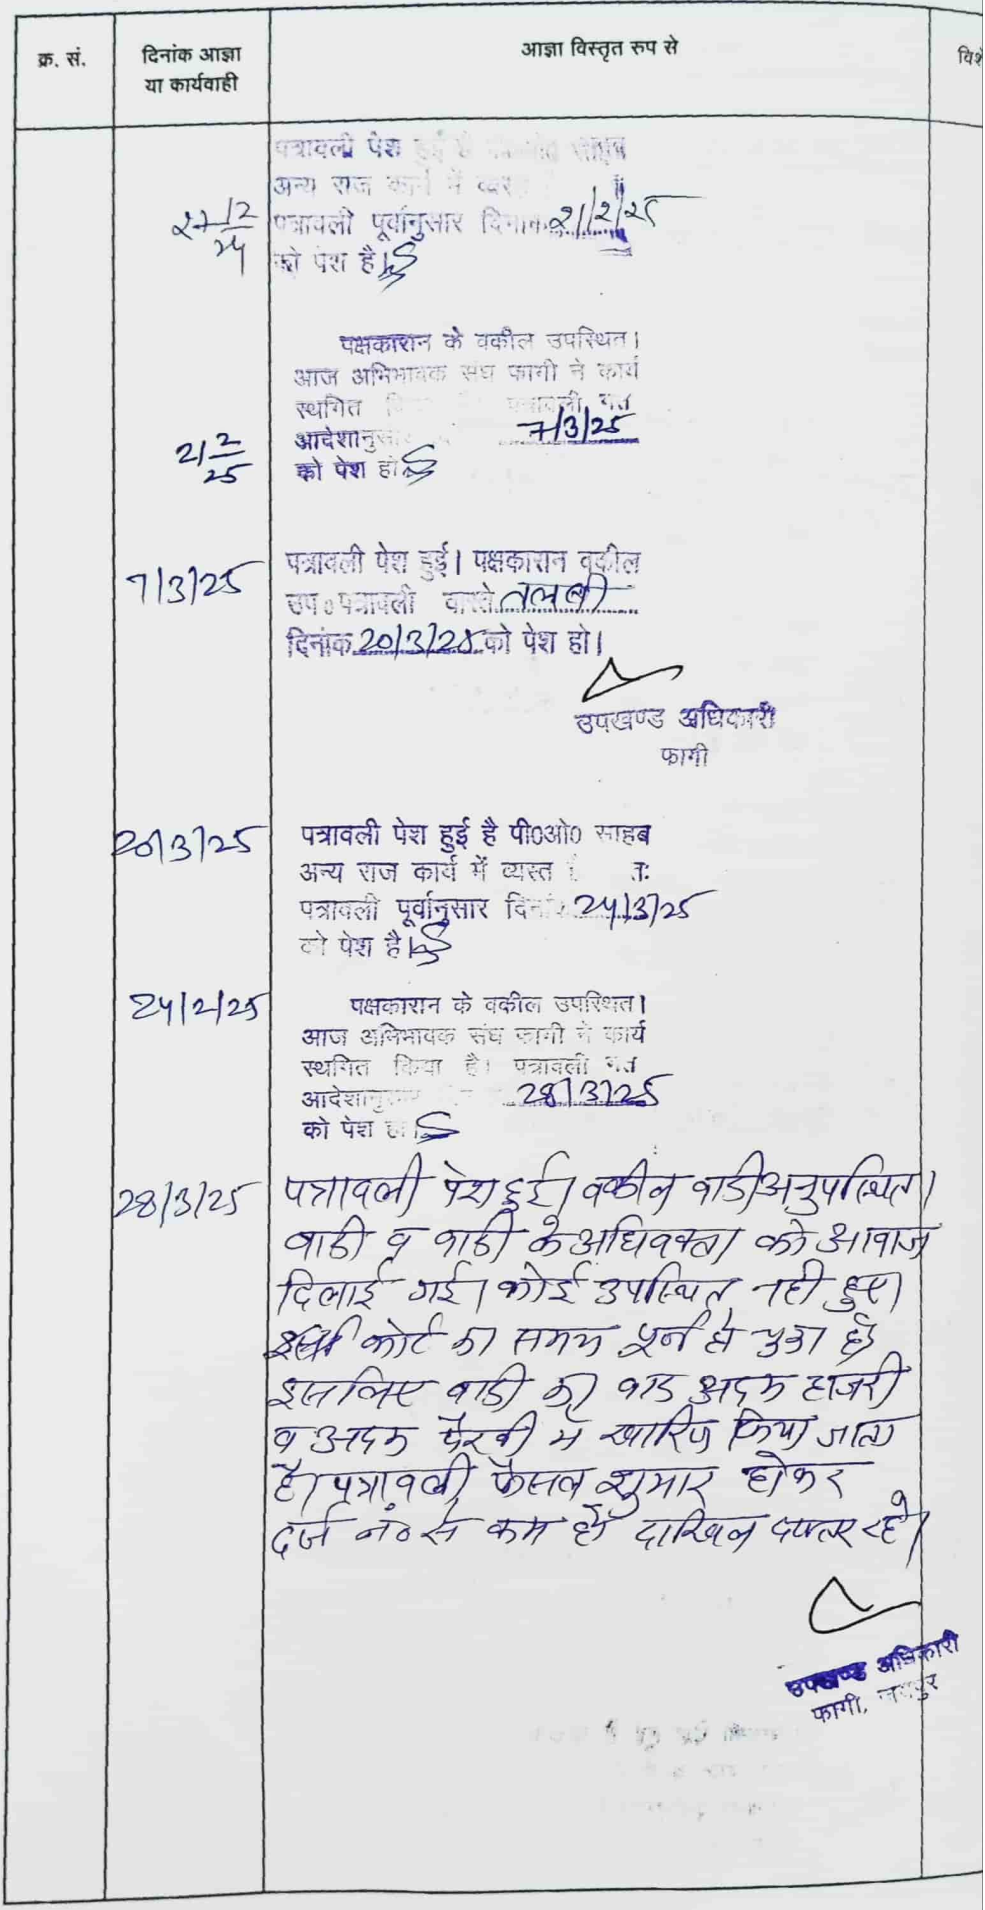 क्र. सं.
दिनांक आज्ञा
या कार्यवाही
आज्ञा विस्तृत रुप से
विशे
27/12/24
पत्रावली पेश हुई है साहब
अन्य राज कार्य में व्यस्त
पत्रावली पूर्वानुसार दिनांक 21/2/25
को पेश है।
21/2/25
पक्षकारान के वकील उपस्थित।
आज अभिभावक संघ फागी ने कार्य
स्थगित पत्रावली गत
आदेशानुसार 7/3/25
को पेश हो
7/3/25
पत्रावली पेश हुई। पक्षकारान वकील
उप० पत्रावली वास्ते तलबी
दिनांक 20/3/25 को पेश हो।
उपखण्ड अधिकारी
फागी
20/3/25
पत्रावली पेश हुई है पी0ओ0 साहब
अन्य राज कार्य में व्यस्त तः
पत्रावली पूर्वानुसार दिनांक 24/3/25
को पेश है।
24/2/25
पक्षकारान के वकील उपस्थित।
आज अभिभावक संघ फागी ने कार्य
स्थगित किया है। पत्रावली गत
आदेशानुसार 28/3/25
को पेश हो।
28/3/25
पत्रावली पेश हुई। वकील वादी अनुपस्थित।
वादी व वादी के अधिवक्ता को आवाज
दिलाई गई। कोई उपस्थित नही हुए।
कोर्ट का समय पूर्ण हो चुका है
इसलिए वादी का वाद अदम हाजरी
व अदम पैरवी में खारिज किया जाता
है। पत्रावली फैसल शुमार होकर
दर्ज नं० से कम हो दाखिल दफ्तर रहे।
उपखण्ड अधिकारी
फागी, जयपुर